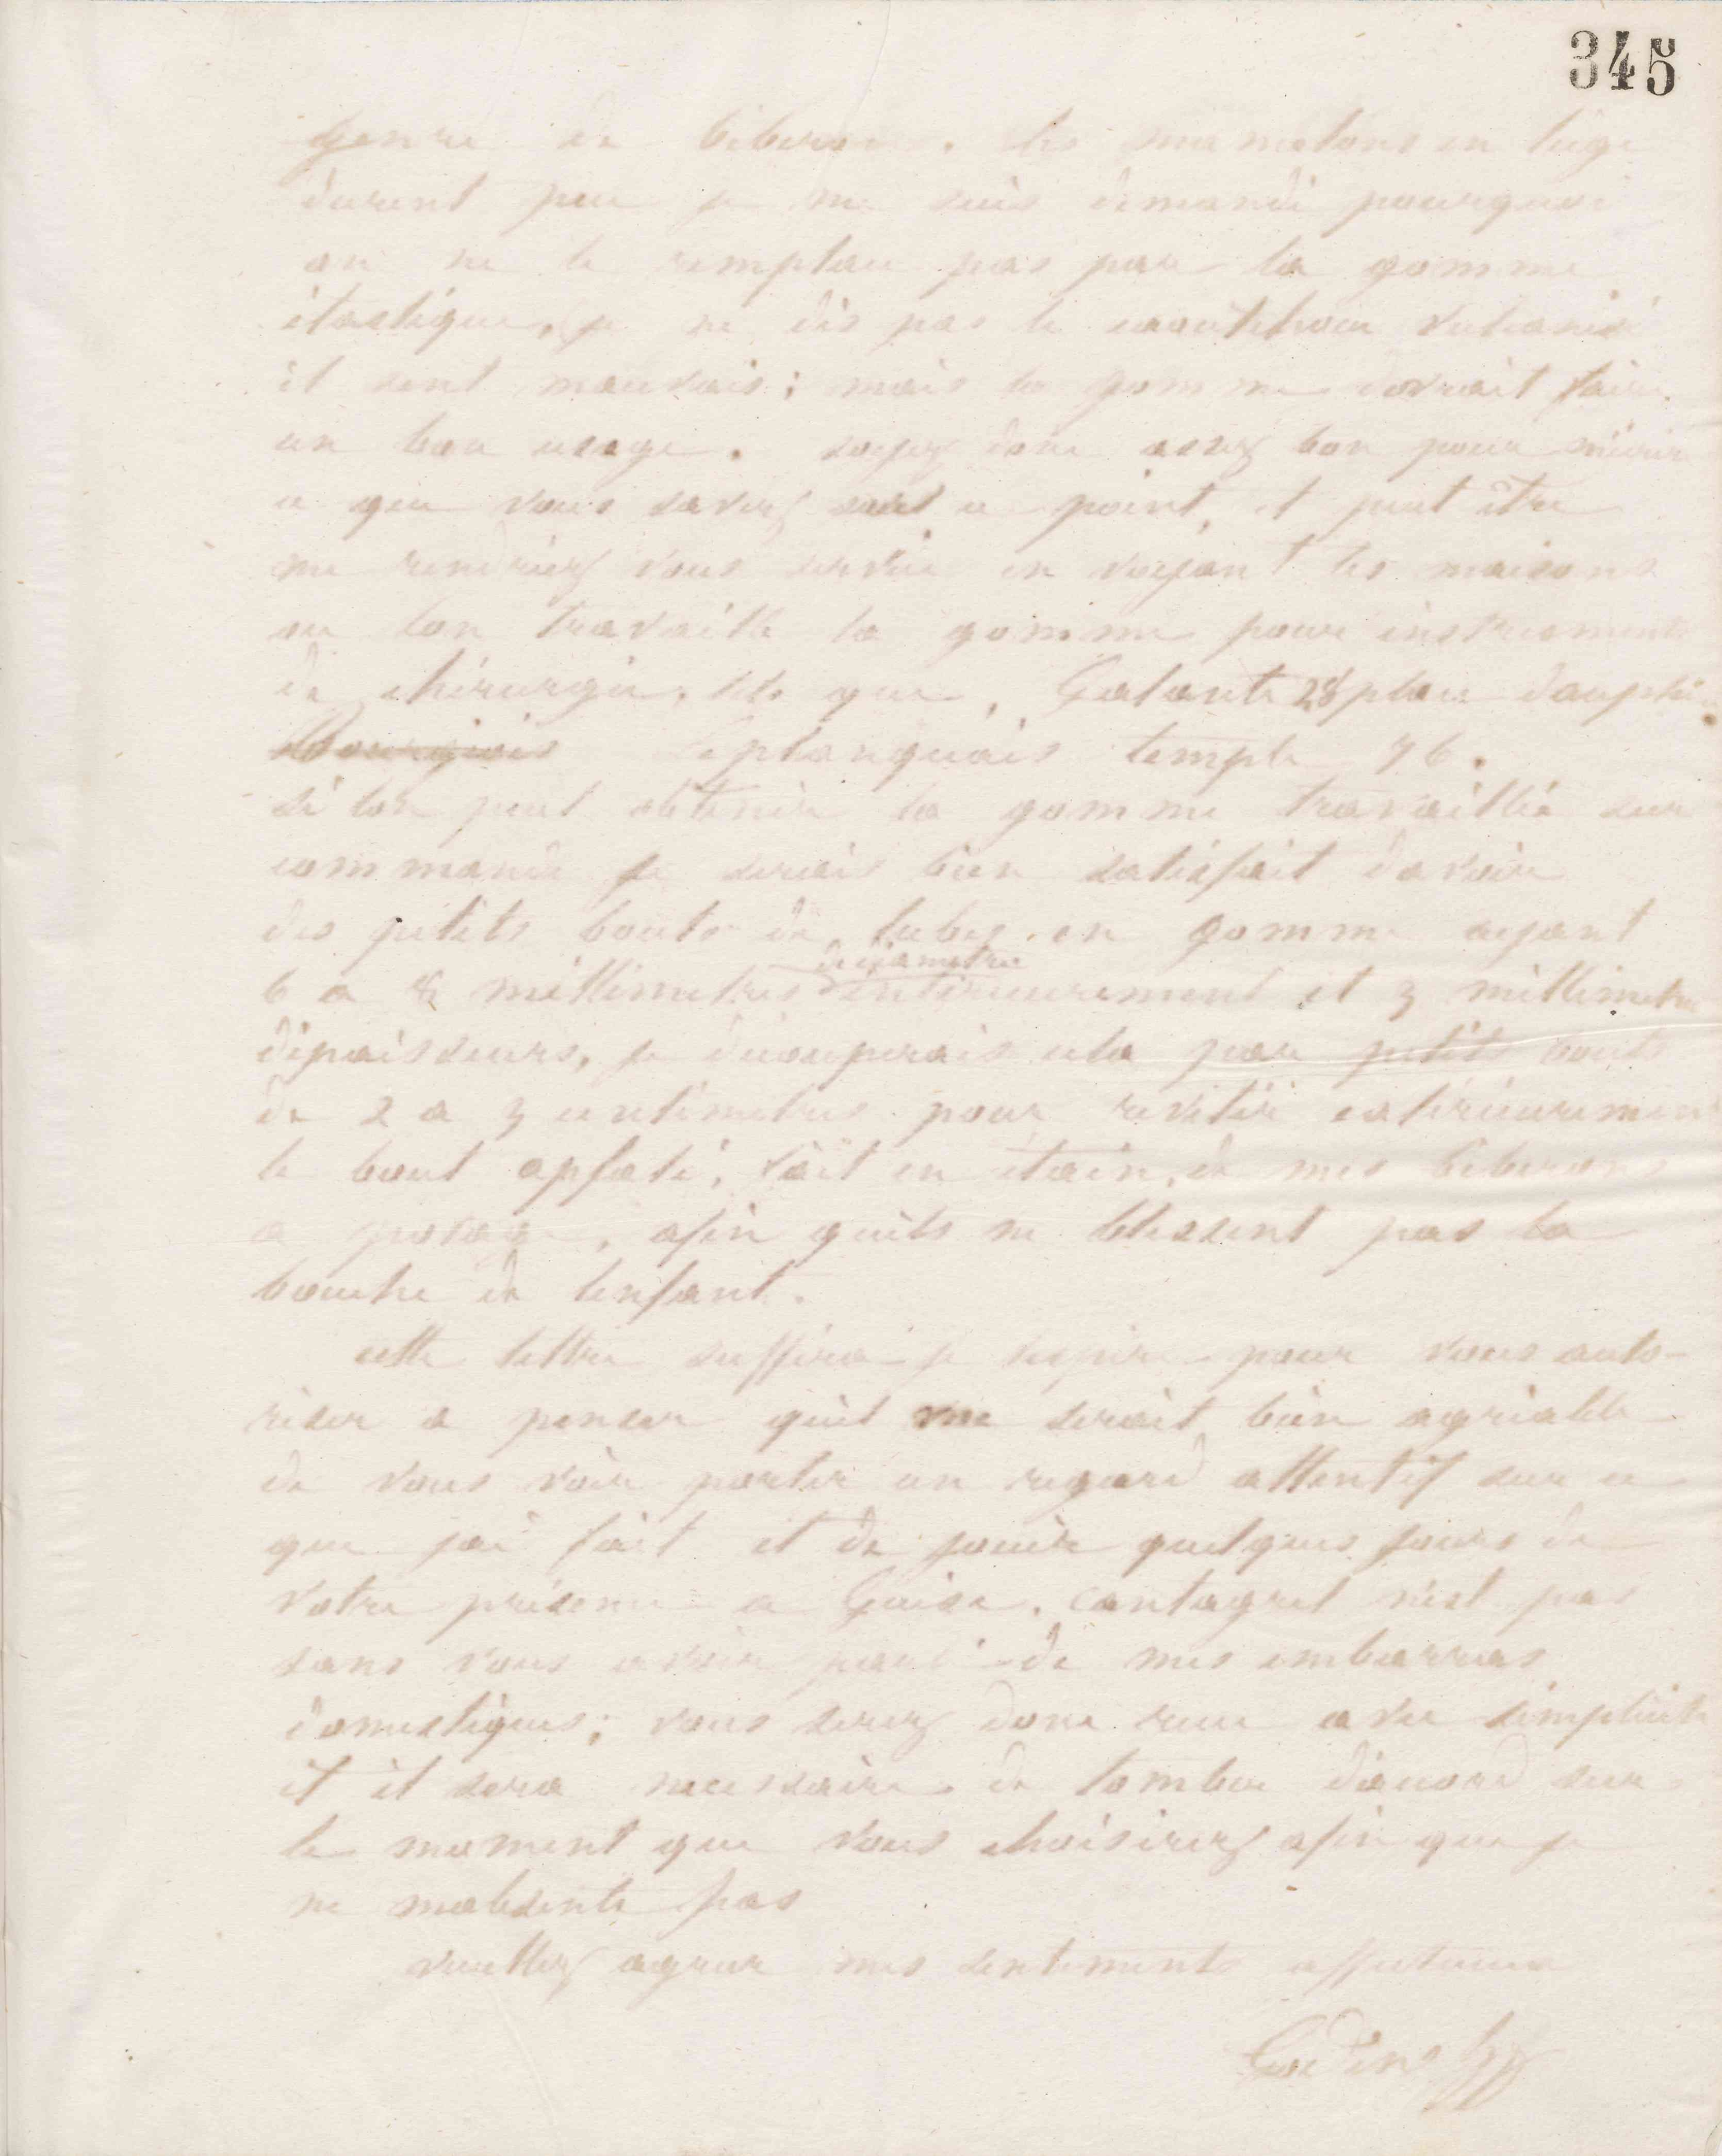 345
genre de biberons. les mamelons en liège
durent peu je me suis demandé pourquoi
on ne le remplace pas par la gomme
élastique, je ne dis pas le caoutchouc vulcanisé
il sent mauvais; mais la gomme devrait faire
un bon usage. soyez donc assez bon pour m'écrire
ce que vous savez sur ce point, et peut être
me rendriez vous service en voyant les maisons
ou lon travaille la gomme pour instruments
de chirurgie, tels que, Galante 28 place dauphine
Bourgeois Leplanquais temple 76.
si lon peut obtenir la gomme travaillée sur
commande je serais bien satisfait davoir
des petits bouts de tubes en gomme ayant
de diametre
6 a 8 millimetres intérieurement et 3 millimetres
dépaisseurs, je découperais cela par petits bouts
de 2 a 3 centimetres pour revêtir extérieurement
le bout applati, fait en étain, de mes biberons
a potage, afin quils ne blessent pas la
bouche de lenfant.
cette lettre suffira je lespère pour vous auto-
riser a penser quil me serait bien agréable
de vous voir porter un regard attentif sur ce
que jai fait et de jouir quelques jours de
votre présence a Guise. Cantagrel n'est pas
sans vous avoir parlé de mes embarras
domestiques; vous serez donc recu avec simplicité
et il sera necessaire de tomber d'accord sur
le moment que vous choisirez afin que je
ne mabsente pas
veuillez agreer mes sentiments affectueux
Godin